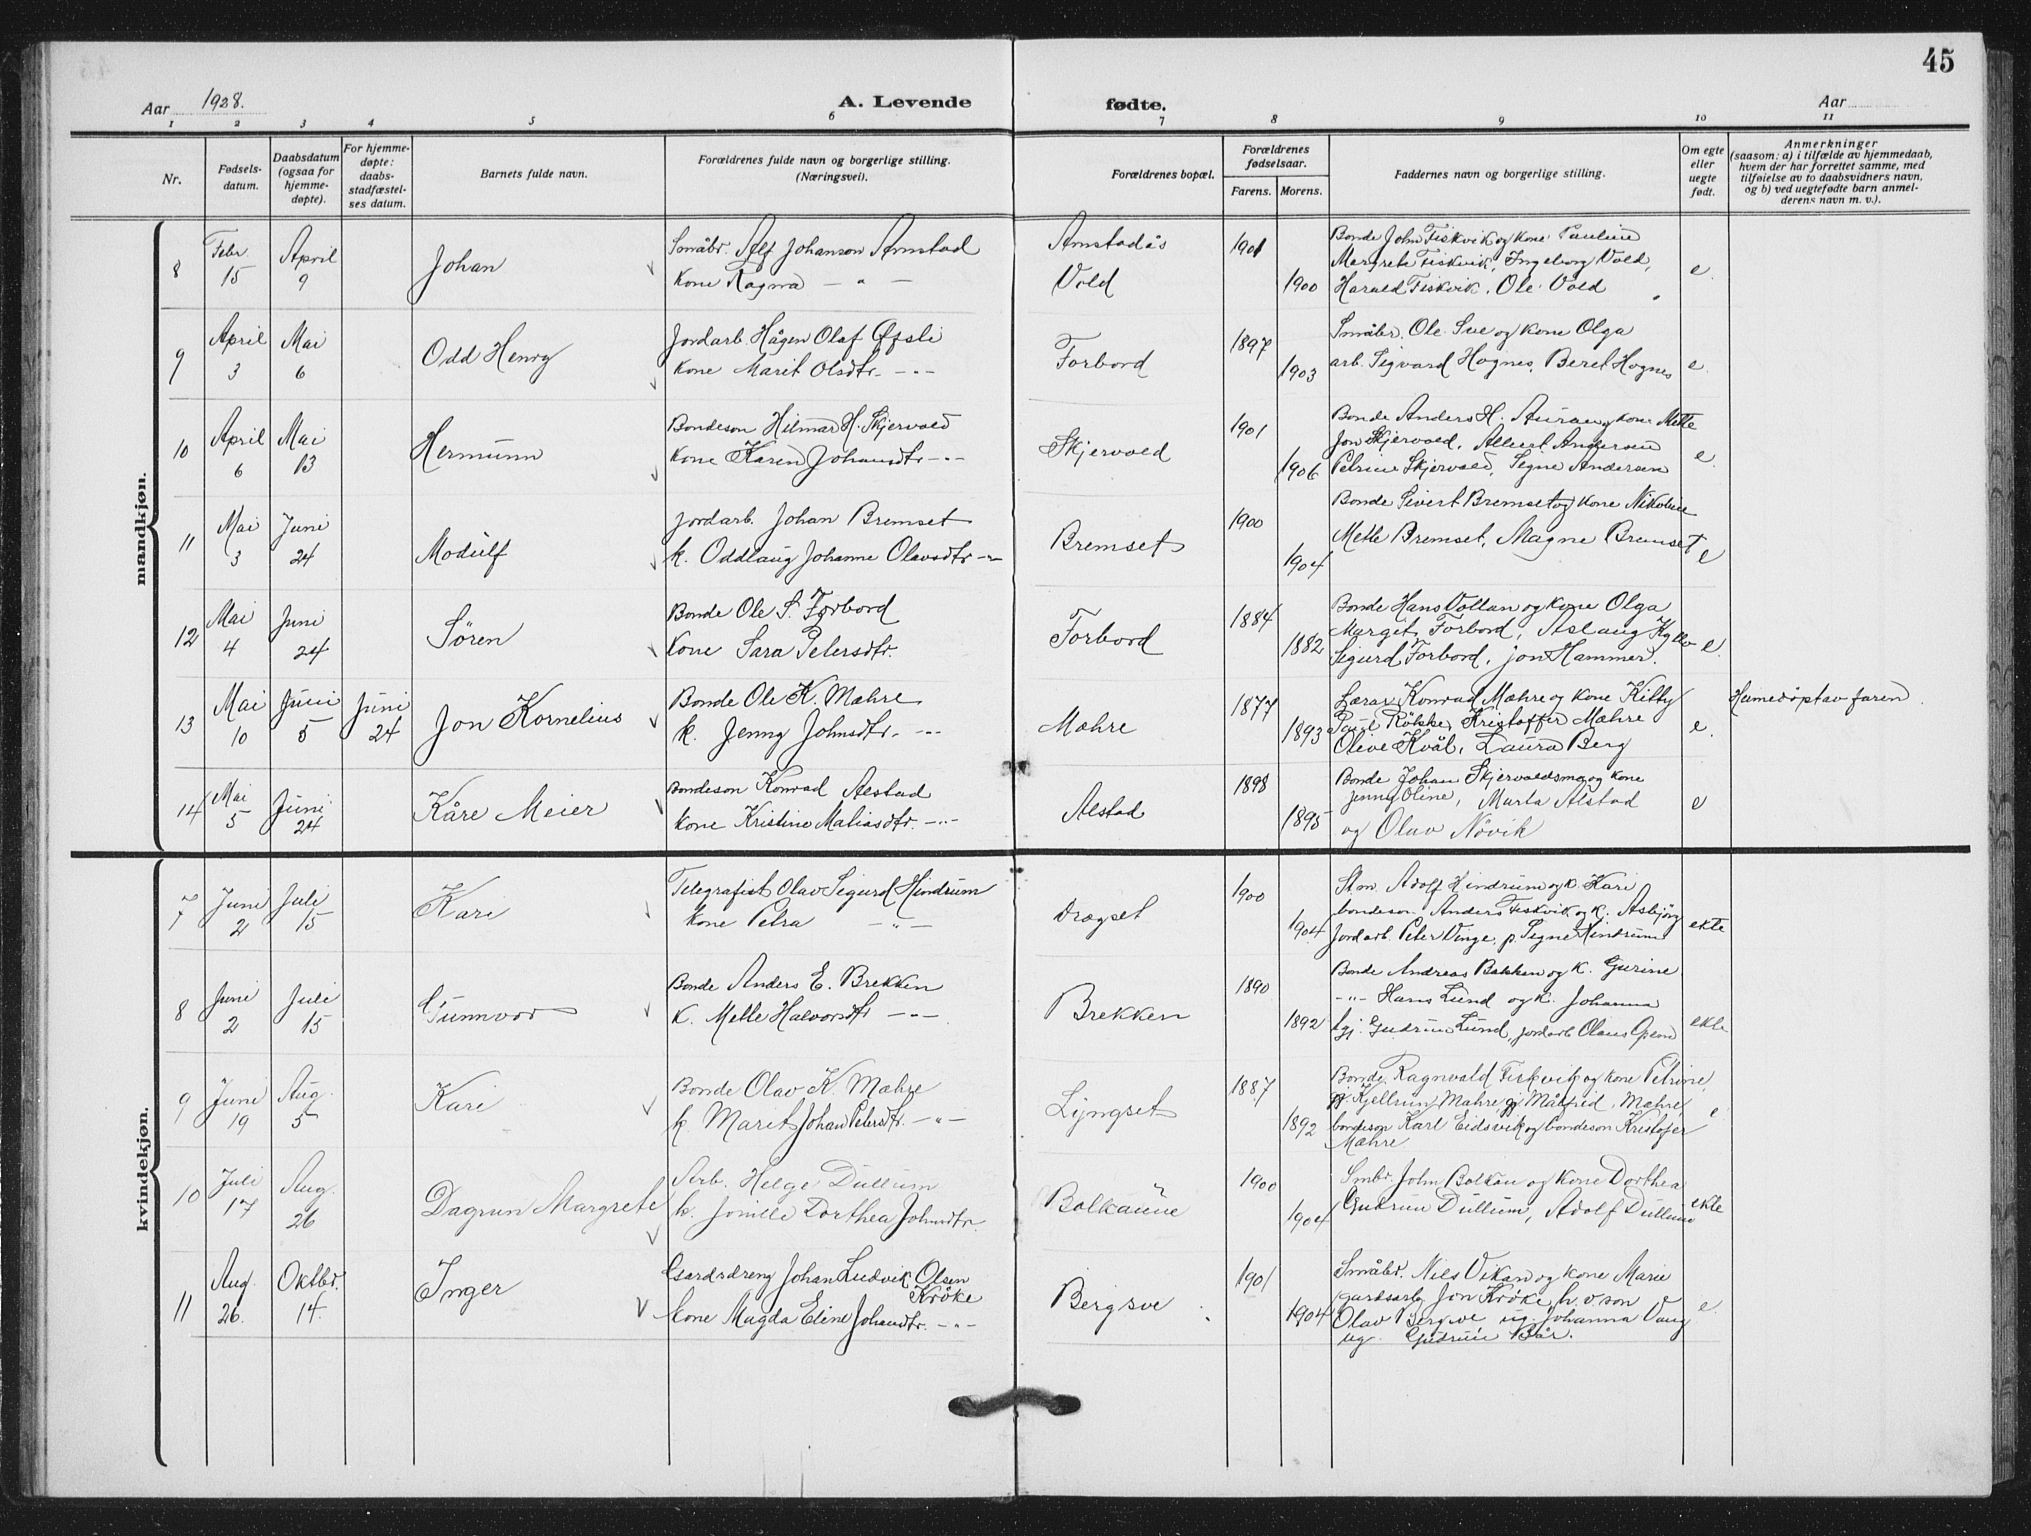 45
Aar 1928.
A. Levende fødte.
Aar
1 2 3 4 5 6 7 8 9 10 11
Nr.
Fødsels-
datum.
Daabsdatum
(ogsaa for
hjemme-
døpte).
For hjemme-
døpte:
daabs-
stadfæstel-
ses datum.
Barnets fulde navn.
Forældrenes fulde navn og borgerlige stilling.
(Næringsvei).
Forældrenes bopæl.
Forældrenes
fødselsaar.
Farens. Morens.
Faddernes navn og borgerlige stilling.
Om egte
eller
uegte
født.
Anmerkninger
(saasom: a) i tilfælde av hjemmedaab,
hvem der har forrettet samme, med
tilføielse av to daabsvidners navn,
og b) ved uegtefødte barn anmel-
derens navn m. v.).
mandkjøn.
8
Febr.
15
April
9
Johan
Småbr. Alf Johanson Arnstad
Kone Ragna — " —
Arnstadås
Vold
1901
1900
Bonde John Fiskvik og kone Pauline
Margrete Fiskvik, Ingeborg Vold,
Harald Fiskvik, Ole Vold
e.
9
April
3
Mai
6
Odd Henry
Jordarb. Hågen Olaf Øfsti
kone Marit Olsdtr. — " —
Forbord
1897
1903
Småbr. Ole Sve og kone Olga
arb. Sigvard Hognes, Beret Hognes
e.
10
April
6
Mai
13
Hermunn
Bondeson Hilmar H. Skjervold
kone Karen Johansdtr — " —
Skjervold
1901
1906
Bonde Anders H. Auran og kone Mette
Jon Skjervold, Albert Andersen
Petrine Skjervold, Signe Andersen
e.
11
Mai
3
Juni
24
Modulf
Jordarb. Johan Bremset
k. Oddlaug Johanne Olavsdtr — " —
Bremset
1900
1904
Bonde Sivert Bremset og kone Nikoline
Mette Bremset, Magne Bremset
e
12
Mai
4
Juni
24
Søren
Bonde Ole S. Forbord
Kone Sara Petersdtr.
Forbord
1884
1882
Bonde Hans Vollan og kone Olga
Margit Forbord, Aslaug Hyllo
Sigurd Forbord, Jon Hammer.
e.
13
Mai
10
Juni
5
Juni
24
Jon Kornelius
Bonde Ole K. Mæhre
k. Jenny Johnsdtr. — " —
Mæhre
1877
1893
Lærar Konrad Mæhre og kone Kitty
Paul Røkke, Kristoffer Mæhre
Olive Kvål, Laura Berg
e.
Heimedøpt av faren.
14
Mai
5
Juni
24
Kåre Meier
Bondeson Konrad Alstad
kone Kristine Matiasdtr. — " —
Alstad
1898
1895
Bonde Johan Skjervoldsmo og kone
Jenny Oline, Marta Alstad
og Olav Növik
e
kvindekjøn.
7
Juni
2
Juli
15
Kari
Telegrafist Olav Sigurd Hindrum
kone Petra — " —
Drogset
1900
1904
Stm. Adolf Hindrum og k. Kari
bondeson Anders Fiskvik og k. Asbjørg
Jordarb. Peter Vinge, p. Signe Hindrum
ekte
8
Juni
2
Juli
15
Gunnvor
Bonde Anders E. Brekken
k. Mette Halvorsdtr — " —
Brekken
1890
1892
Bonde Andreas Bakken og k. Gurine
— " — Hans Lund og k. Johanna
gj. Gudrun Lund, jordarb. Olaus Opem
ekte
9
Juni
19
Aug.
5
Kari
Bonde Olav K. Mæhre
k. Marit Johan Petersdtr. — " —
Lyngset
1887
1892
Bonde Ragnvald Fiskvik og kone Petrine,
pj. Kjellrun Mæhre, gj. Målfrid Mæhre,
bondeson Karl Eidsvik og bondeson Kristofer
Mæhre
e
10
Juli
17
Aug.
26
Dagrun Margrete
Arb. Helge Dullum
k. Jonille Dorthea Johnsdtr.
Bolkaune
1900
1904
Smbr. John Bolkan og kone Dorthea
Gudrun Dullum, Adolf Dullum
ekte
11
Aug.
26.
Oktbr.
14.
Inger
Gardsdreng Johan Ludvik Olsen
Krøke
kone Magda Eline Johansdtr. — " —
Bergsve
1901
1904
Småbr. Nils Vikan og kone Marie
gardsarb. Jon Krøke, h.v. son
Olav Bergsve ug. Johanna Vang
ug. Gudrun Bår.
e.